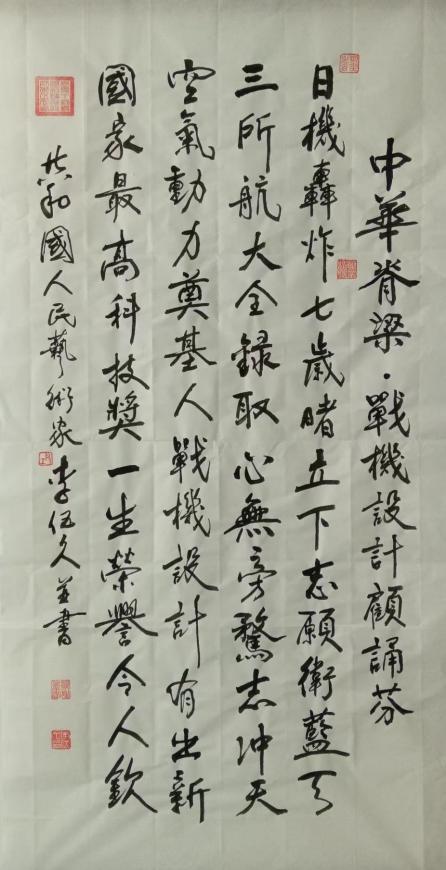 中華脊梁·戰機設計顧誦芬
日機轟炸七歲睹立下志願衛藍天
三所航大全録取心無旁騖志沖天
空氣動力奠基人戰機設計有出新
國家最高科技獎一生榮譽令人欽
共和國人民藝術家李伍久并書